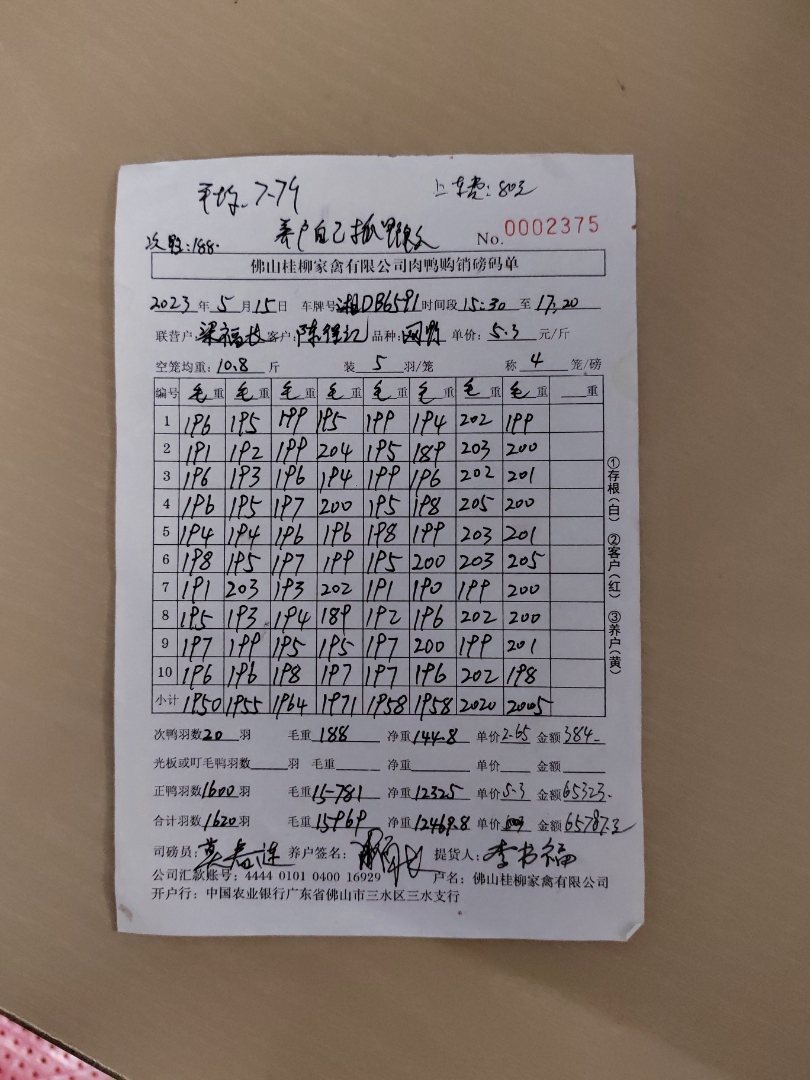 平均:7-79 上车费:80元
次鸭:188. 养户自己抓 No.0002375
佛山桂柳家禽有限公司肉鸭购销磅码单
2023年5月15日 车牌号湘DB6591时间段15:30至17:20
联营户:梁福长 客户:陈 品种: 单价:5.3元/斤
空笼均重:10.8斤 装5羽/笼 称4笼/磅
编号 毛重 毛重 毛重 毛重 毛重 毛重 毛重 毛重 重
1 196 195 199 195 199 194 202 199
2 191 192 199 204 195 189 203 200
3 196 193 196 194 199 196 202 201
4 196 195 197 200 195 198 205 200
5 194 194 196 196 198 199 203 201
6 198 195 197 199 195 200 203 205
7 191 203 193 202 191 190 199 200
8 195 193 194 189 192 196 202 200
9 197 199 195 195 197 200 199 201
10 196 196 198 197 197 196 202 198
小计 1950 1955 1964 1971 1958 1958 2020 2005
次鸭羽数20羽 毛重188 净重144.8 单价2.65 金额384-
光板或叮毛鸭羽数 羽 毛重 净重 单价 金额
正鸭羽数1600羽 毛重15-781 净重12325 单价5.3 金额65323-
合计羽数1620羽 毛重15969 净重12469.8 单价 金额65787.2
司磅员:莫春连 养户签名: 提货人:李书福
公司汇款账号:4444 0101 0400 16929 户名:佛山桂柳家禽有限公司
开户行:中国农业银行广东省佛山市三水区三水支行
①存根(白) ②客户(红) ③养户(黄)